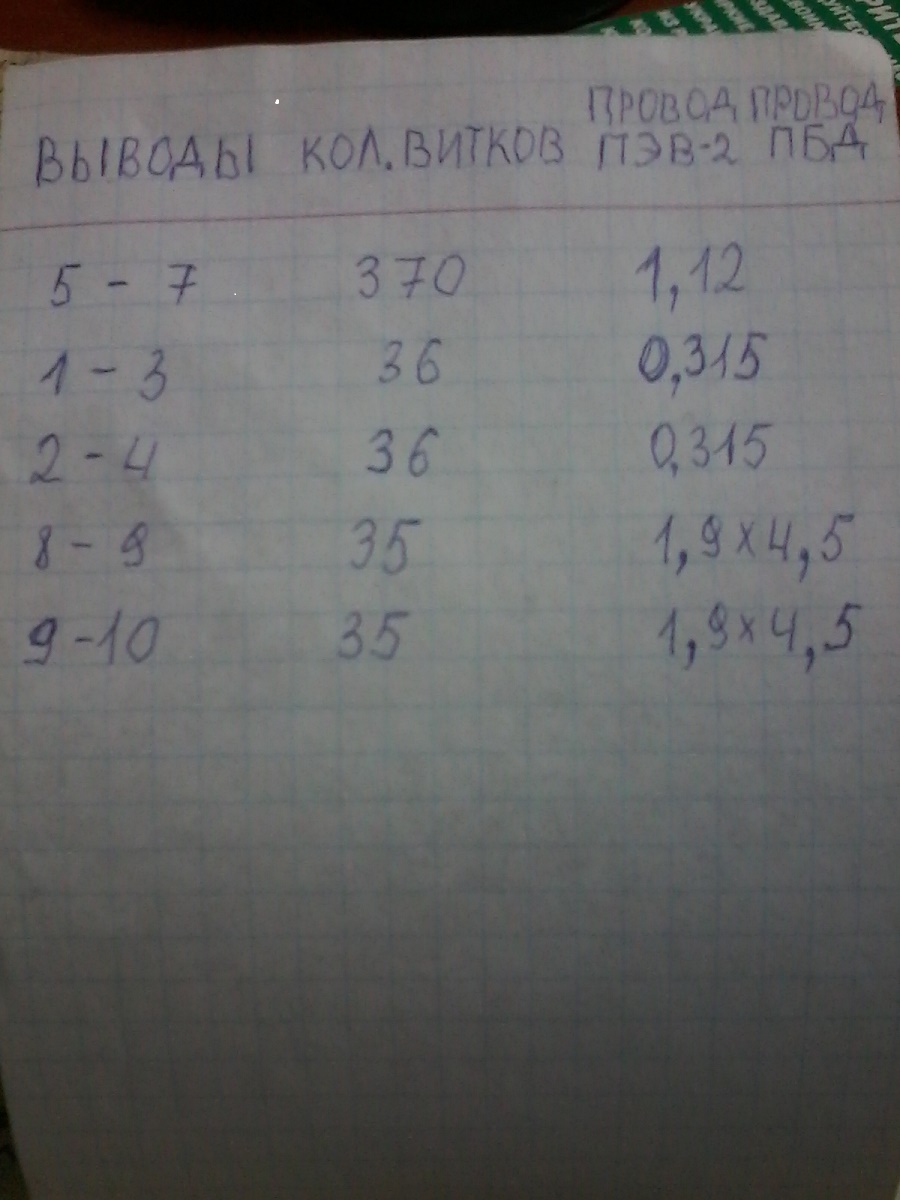 ПРОВОД ПРОВОД
ВЫВОДЫ КОЛ. ВИТКОВ ПЭВ-2 ПБД
5 - 7 370 1,12
1 - 3 36 0,315
2 - 4 36 0,315
8 - 9 35 1,9×4,5
9 - 10 35 1,9×4,5